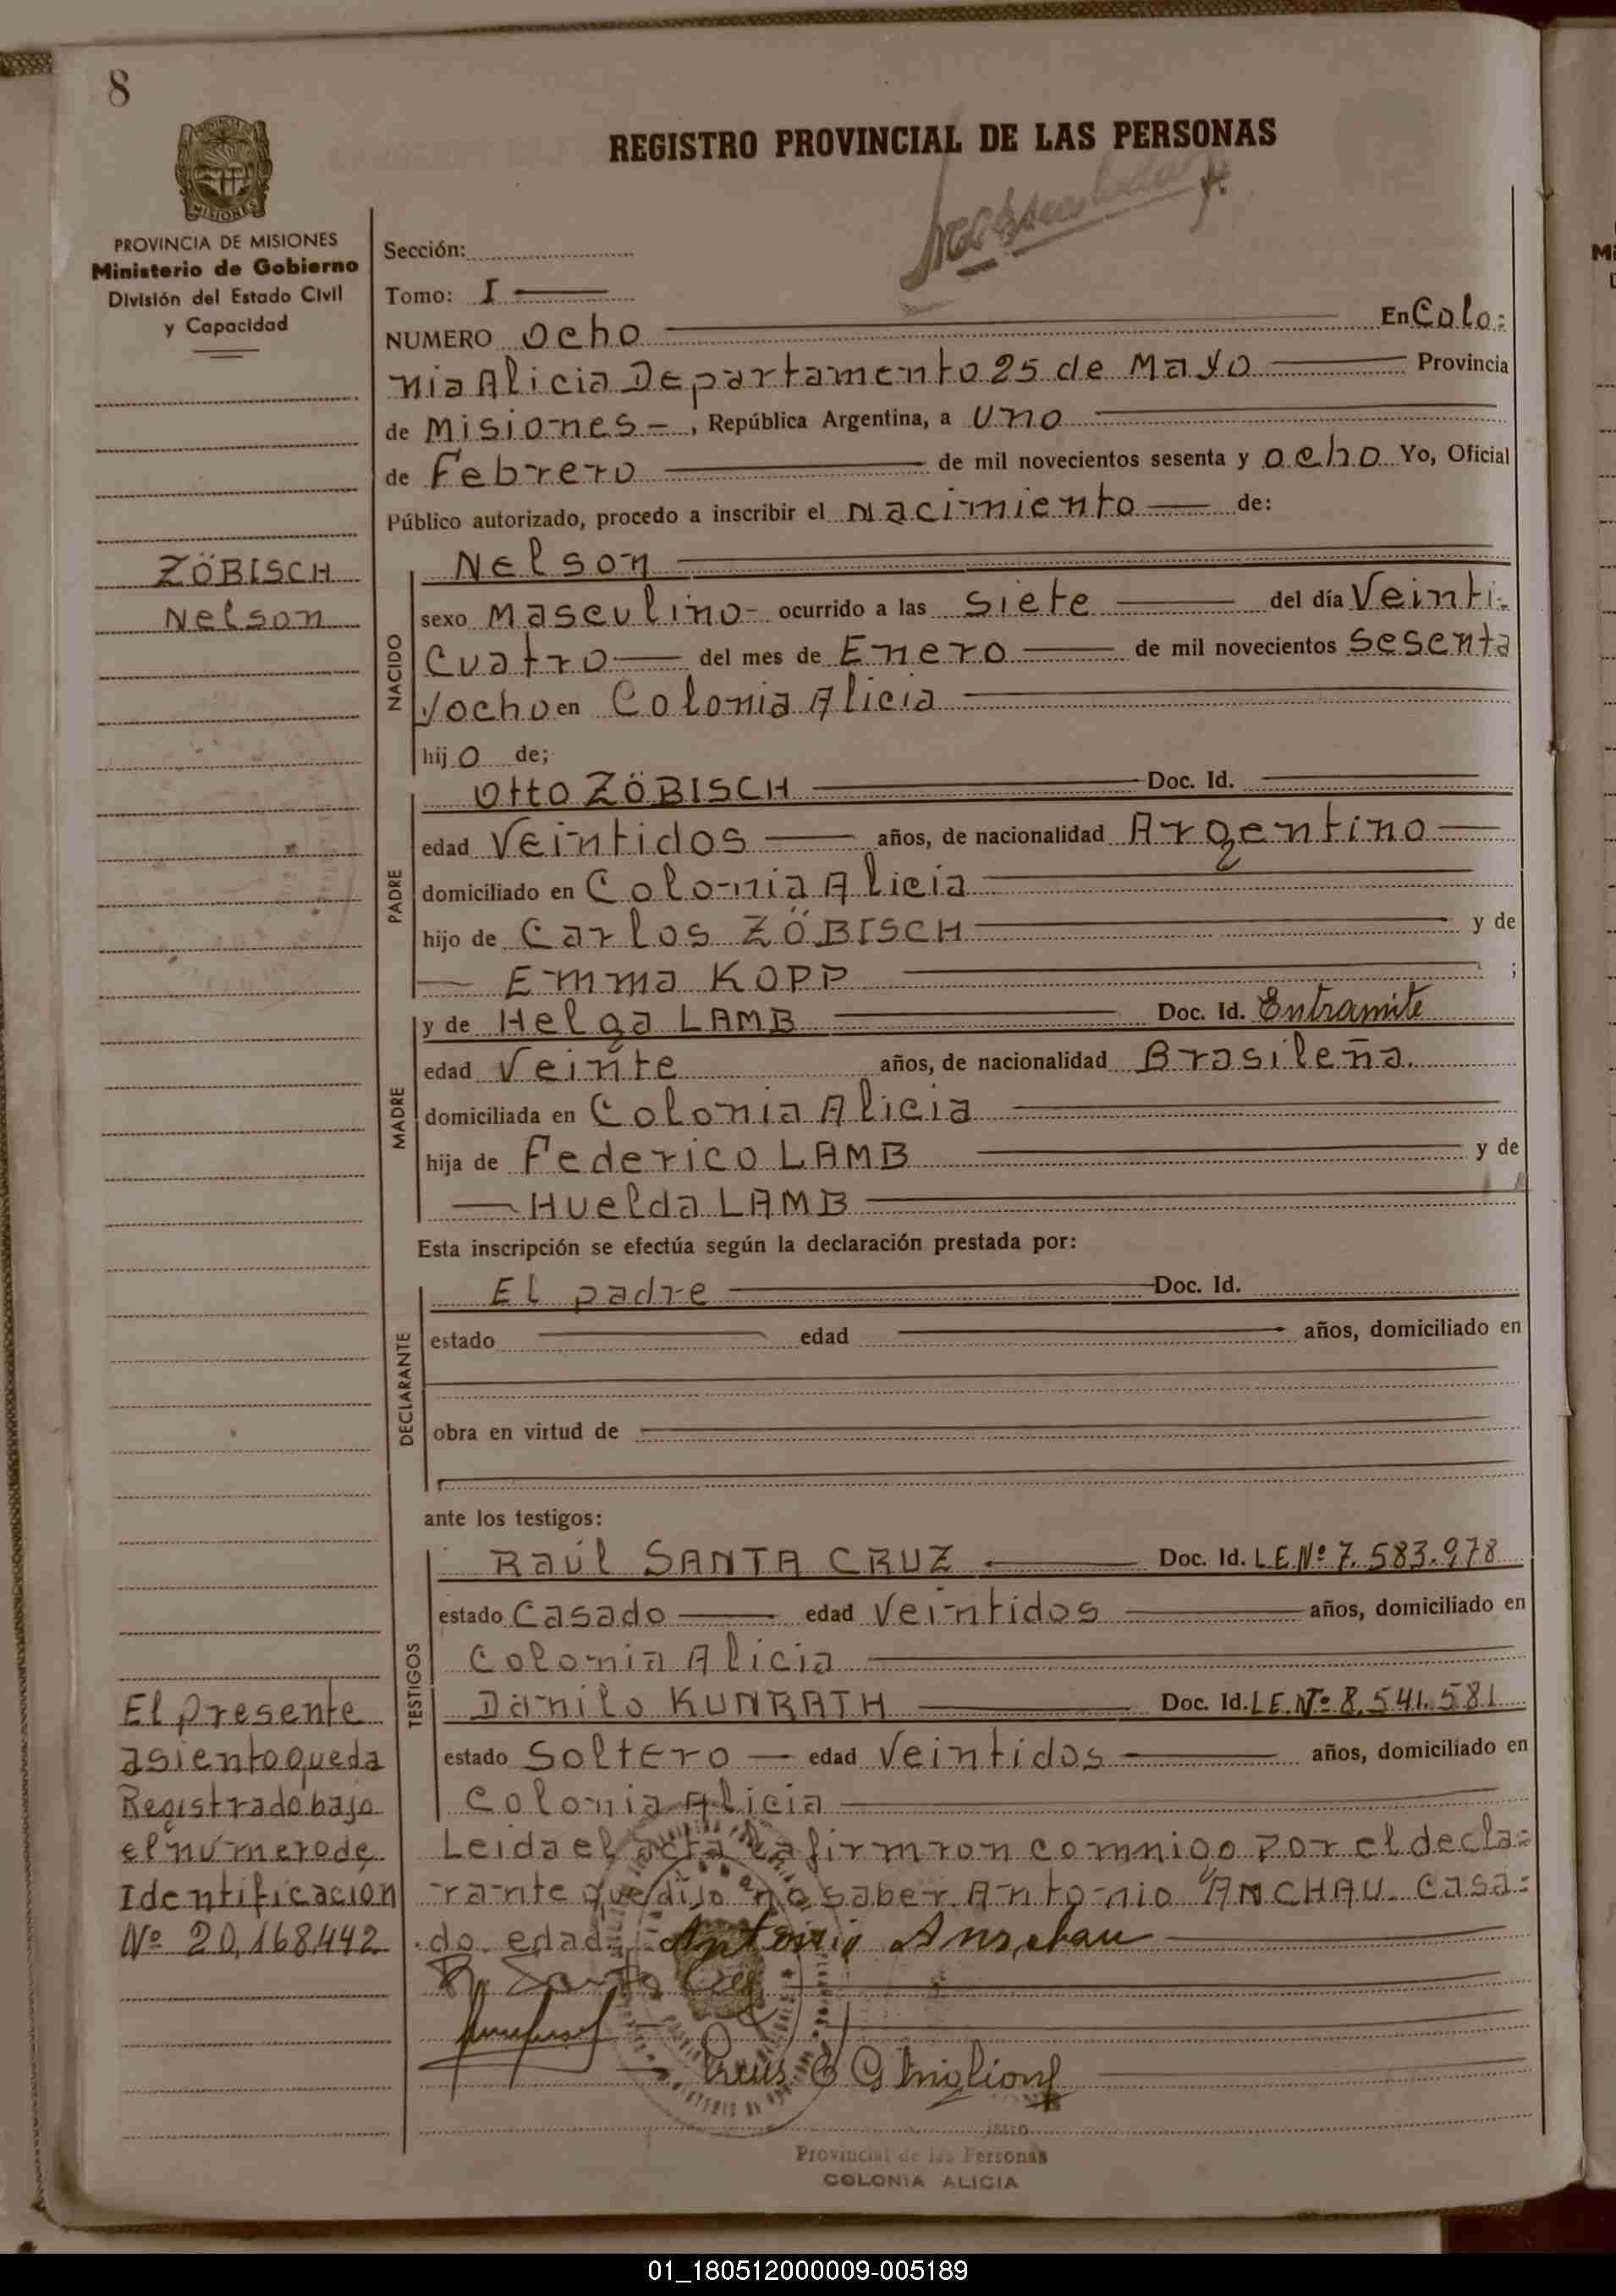 8
REGISTRO PROVINCIAL DE LAS PERSONAS
PROVINCIA DE MISIONES
Ministerio de Gobierno
División del Estado Civil
y Capacidad
Sección:
Tomo: I
NUMERO Ocho En Colo=
nia Alicia Departamento 25 de Mayo Provincia
de Misiones - , República Argentina, a Uno
de Febrero de mil novecientos sesenta y ocho Yo, Oficial
Público autorizado, procedo a inscribir el Nacimiento de:
ZÖBISCH
Nelson
NACIDO
Nelson
sexo Masculino- ocurrido a las Siete del día Veinti-
Cuatro del mes de Enero de mil novecientos Sesenta
yocho en Colonia Alicia
hijo de;
PADRE
Otto ZÖBISCH Doc. Id.
edad Veintidos años, de nacionalidad Argentino
domiciliado en Colonia Alicia
hijo de Carlos ZÖBISCH y de
Emma KOPP ;
MADRE
y de Helga LAMB Doc. Id. Entramite
edad Veinte años, de nacionalidad Brasileña.
domiciliada en Colonia Alicia
hija de Federico LAMB y de
Huelda LAMB
Esta inscripción se efectúa según la declaración prestada por:
DECLARANTE
El padre Doc. Id.
estado edad años, domiciliado en
obra en virtud de
ante los testigos:
TESTIGOS
Raúl SANTA CRUZ Doc. Id. L.E.Nº 7.583.978
estado Casado edad Veintidos años, domiciliado en
Colonia Alicia
Danilo KUNRATH Doc. Id. L.E.Nº 8.541.581
estado Soltero edad Veintidos años, domiciliado en
Colonia Alicia
El presente
asiento queda
Registrado bajo
el número de
Identificacion
Nº 20.168.442
Leida el acta la firmron comnigo por el decla=
rante que dijo no saber Antonio ANCHAU casa=
do edad Antonio Anschau
R. Santa Cruz
Provincial de las Personas
COLONIA ALICIA
01_180512000009-005189